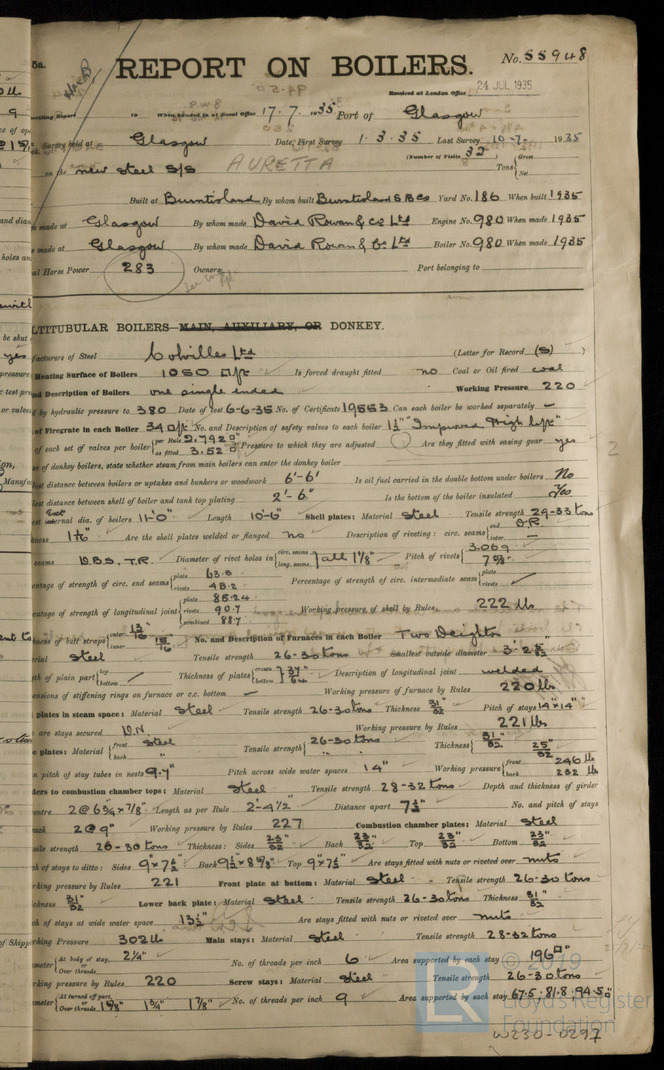 5a.
REPORT ON BOILERS.
No. 55948
Received at London Office 24 JUL 1935
Writing Report 19 When handed in at Local Office 17.7.1935 Port of Glasgow
Survey held at Glasgow Date, First Survey 1.3.35 Last Survey 10-7-1935
on the new steel S/S AURETTA (Number of Visits 32) Tons Gross Net
Built at Burntisland By whom built Burntisland S B Co Yard No. 186 When built 1935
made at Glasgow By whom made David Rowan & Co Ltd Engine No. 980 When made 1935
made at Glasgow By whom made David Rowan & Co Ltd Boiler No. 980 When made 1935
al Horse Power 283 Owners Port belonging to
LTITUBULAR BOILERS MAIN, AUXILIARY, OR DONKEY.
facturers of Steel Colvilles Ltd (Letter for Record (S) )
Heating Surface of Boilers 1050 □ft Is forced draught fitted no Coal or Oil fired coal
nd Description of Boilers one single ended Working Pressure 220
d by hydraulic pressure to 380 Date of test 6-6-35 No. of Certificate 19553 Can each boiler be worked separately –
of Firegrate in each Boiler 34 □ft No. and Description of safety valves to each boiler 1½" "Improved High lift"
of each set of valves per boiler per Rule 2.792□" as fitted 3.52□" Pressure to which they are adjusted Are they fitted with easing gear yes
se of donkey boilers, state whether steam from main boilers can enter the donkey boiler
st distance between boilers or uptakes and bunkers or woodwork 6'-6" Is oil fuel carried in the double bottom under boilers No
est distance between shell of boiler and tank top plating 2'-6" Is the bottom of the boiler insulated Yes
internal dia. of boilers 11'-0" Length 10'-6" Shell plates: Material Steel Tensile strength 29-33 tons
kness Are the shell plates welded or flanged no Description of riveting: circ. seams end D.R. inter –
seams D.B.S. T.R. Diameter of rivet holes in circ. seams long. seams all 1⅛" Pitch of rivets 3.069 7⅝"
centage of strength of circ. end seams plate 63.3 rivets 48.2 Percentage of strength of circ. intermediate seam plate rivets
entage of strength of longitudinal joint plate 85.24 rivets 90.7 combined 88.7 Working pressure of shell by Rules 222 lbs
kness of butt straps outer 13/16 inner 15/16 No. and Description of Furnaces in each Boiler Two Deighton
rial Steel Tensile strength 26-30 tons Smallest outside diameter
th of plain part top bottom Thickness of plates crown bottom 37/64 Description of longitudinal joint welded
ensions of stiffening rings on furnace or c.c. bottom – Working pressure of furnace by Rules 220 lbs
plates in steam space: Material Steel Tensile strength 26-30 tons Thickness 31/32 Pitch of stays 14" x 14"
are stays secured D.N. Working pressure by Rules 221 lbs
e plates: Material front Steel back " Tensile strength 26-30 tons " " Thickness 31/32 25/32
n pitch of stay tubes in nests 9.7" Pitch across wide water spaces 14" Working pressure front 246 lb back 232 lb
ders to combustion chamber tops: Material Steel Tensile strength 28-32 tons Depth and thickness of girder
entre 2@ 6¾" x ⅞" Length as per Rule 2'-4½" Distance apart 7½" No. and pitch of stays
each 2@9" Working pressure by Rules 227 Combustion chamber plates: Material Steel
sile strength 26-30 tons Thickness: Sides 23/32 Back 23/32 Top 23/32 Bottom 23/32
ch of stays to ditto: Sides 9" x 7½" Back 9½ x 8⅝" Top 9" x 7½" Are stays fitted with nuts or riveted over nuts
rking pressure by Rules 221 Front plate at bottom: Material Steel Tensile strength 26-30 tons
ckness 31/32 Lower back plate: Material Steel Tensile strength 26-30 tons Thickness 31/32
ch of stays at wide water space 13½" Are stays fitted with nuts or riveted over nuts
rking Pressure 302 lb Main stays: Material Steel Tensile strength 28-32 tons
meter At body of stay, Over threads 2¾" No. of threads per inch 6 Area supported by each stay 196□"
rking pressure by Rules 220 Screw stays: Material Steel Tensile strength 26-30 tons
meter At turned off part, Over threads 1⅝" 1¾" 1⅞" No. of threads per inch 9 Area supported by each stay 67.5 . 81.8 . 94.5□"
© 2019
LR
Lloyd's Register
Foundation
W230-0297